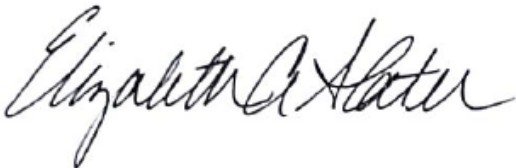 Elizabeth A Slater